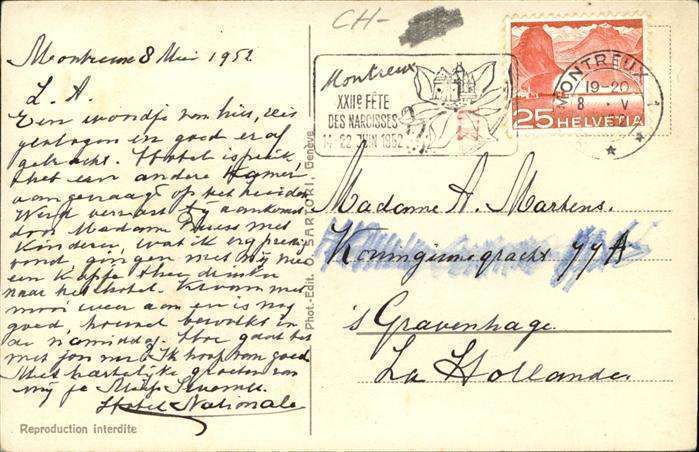 CH-
Montreux 8 Mei 1952
L. A.
Een woordje van hier, reis
en goed er af
gebracht. Hotel is
een andere kamer
aangevraagd op het
Werd verrast bij aankomst
door Madame met
Kinderen, wat ik erg prettig
vond, gingen met mij mee
een Kopje thee drinken
naar het hotel. Kwam met
mooi weer aan en is nog
goed, hoewel bewolkt in
de namiddag. Hoe gaat het
met jou Ik hoop van goed
Met hartelijke groeten van
mij je
Hotel Nationale
Reproduction interdite
Phot.-Edit. O. SARTORI, Genève
Montreux
XXIIe FÊTE
DES NARCISSES
22 JUIN 1952
MONTREUX
19-20
8 V
25 HELVETIA
Madame A. Martens.
Koninginnegracht 77A
's Gravenhage.
La Hollande